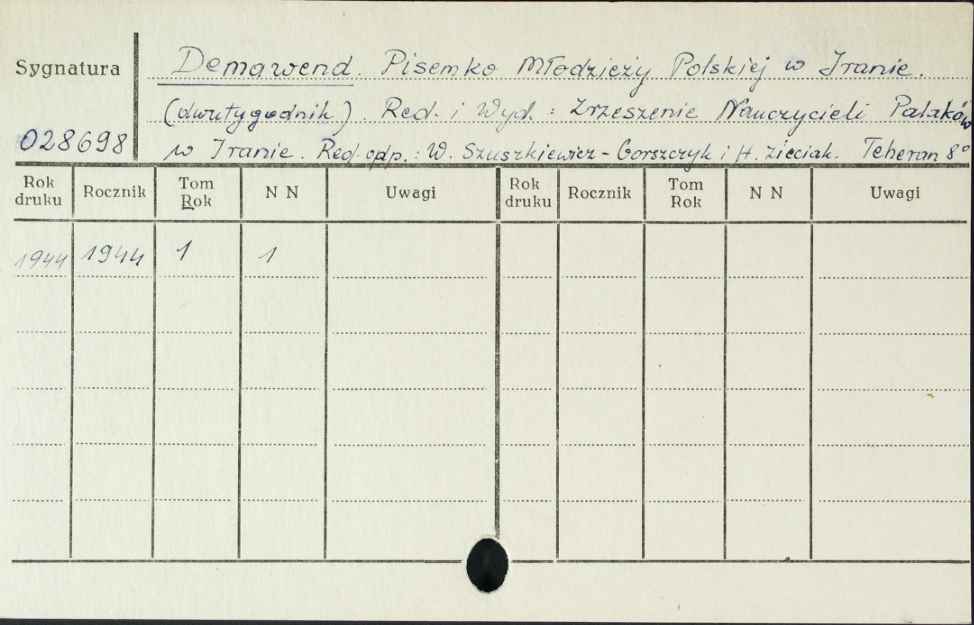 Sygnatura
028698
Demawend. Pisemko Młodzieży Polskiej w Iranie.
(dwutygodnik). Red. i Wyd. : Zrzeszenie Nauczycieli Polaków
w Iranie. Red. odp. : W. Szuszkiewicz-Gorszczyk i H. Zieciak. Teheran 8°
Rok druku Rocznik Tom Rok N N Uwagi Rok druku Rocznik Tom Rok N N Uwagi
1944 1944 1 1